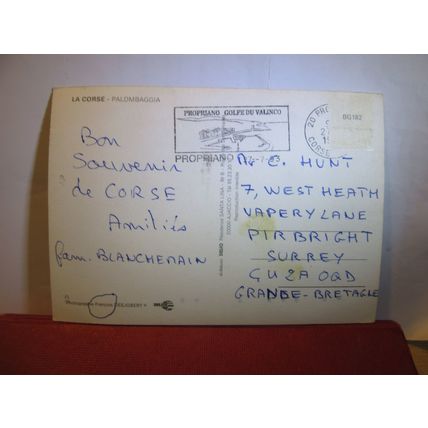 LA CORSE - PALOMBAGGIA
Bon
Souvenir
de CORSE
Amitiés
fam. BLANCHEMAIN
PROPRIANO GOLFE DU VALINCO
PROPRIANO
20 PRO
CORSE
BG182
C. HUNT
7, WEST HEATH
VAPERY LANE
PIRBRIGHT
SURREY
GU24 0QD
GRANDE-BRETAGNE
Photographie François DESJOBERT